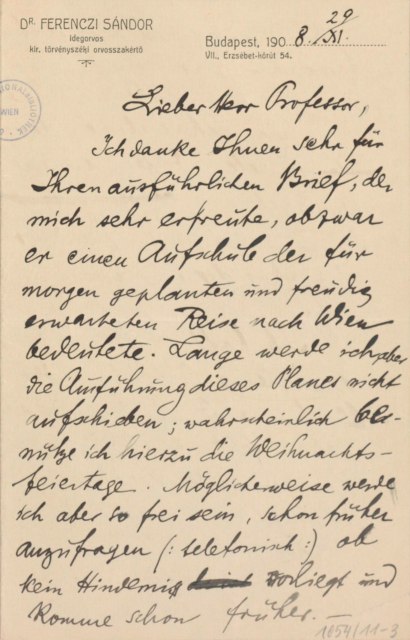 DR. FERENCZI SÁNDOR
idegorvos
kir. törvényszéki orvosszakértő
Budapest, 190 8. 29/XI.
VII., Erzsébet-körút 54.
WIEN
Lieber Herr Professor,
Ich danke Ihnen sehr für
Ihren ausführlichen Brief, der
mich sehr erfreute, obzwar
er einen Aufschub der für
morgen geplanten und freudig
erwarteten Reise nach Wien
bedeutete. Lange werde ich aber
die Ausführung dieses Planes nicht
aufschieben; wahrscheinlich be-
nütze ich hierzu die Weihnachts-
feiertage. Möglicherweise werde
ich aber so frei sein, schon früher
anzufragen (: telefonisch :) ob
kein Hindernis vorliegt und
komme schon früher. —
1054/11-3